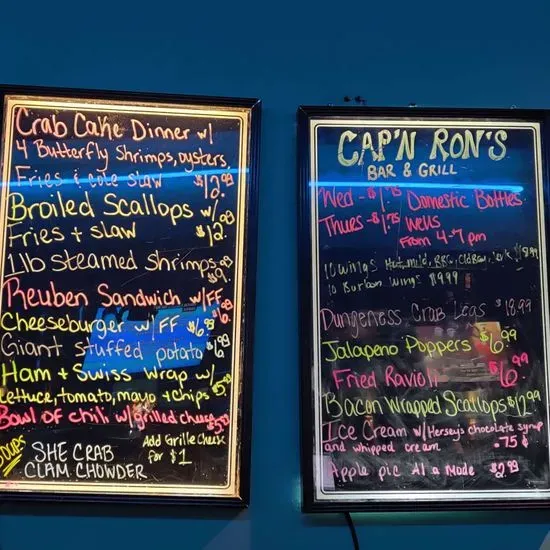 Crab Cake Dinner w/
4 Butterfly Shrimps, oysters,
Fries & cole slaw $12.99
Broiled Scallops w/
Fries + slaw $12.99
1 lb steamed Shrimps $9.99
Reuben Sandwich w/FF $6.
Cheeseburger w/ FF $6.99
Giant stuffed potato $6.99
Ham + Swiss wrap w/
lettuce, tomato, mayo + chips $5.
Bowl of chili w/grilled cheese
Soups
SHE CRAB
CLAM CHOWDER
Add Grille Cheek
for $1
CAP'N RON'S
BAR & GRILL
Wed - $1.75 Domestic Bottles
Thurs - $1.75 wells
From 4-7 pm
10 wings Hot, mild, BBQ, Old Bay,
10 Burbon wings $9.99
Dungeness Crab Legs $18.99
Jalapeno Poppers $6.99
Fried Ravioli $6.99
Bacon Wrapped Scallops $12.99
Ice Cream w/Hersey's chocolate syrup
and whipped cream .75¢
Apple pie Al a Mode $2.99